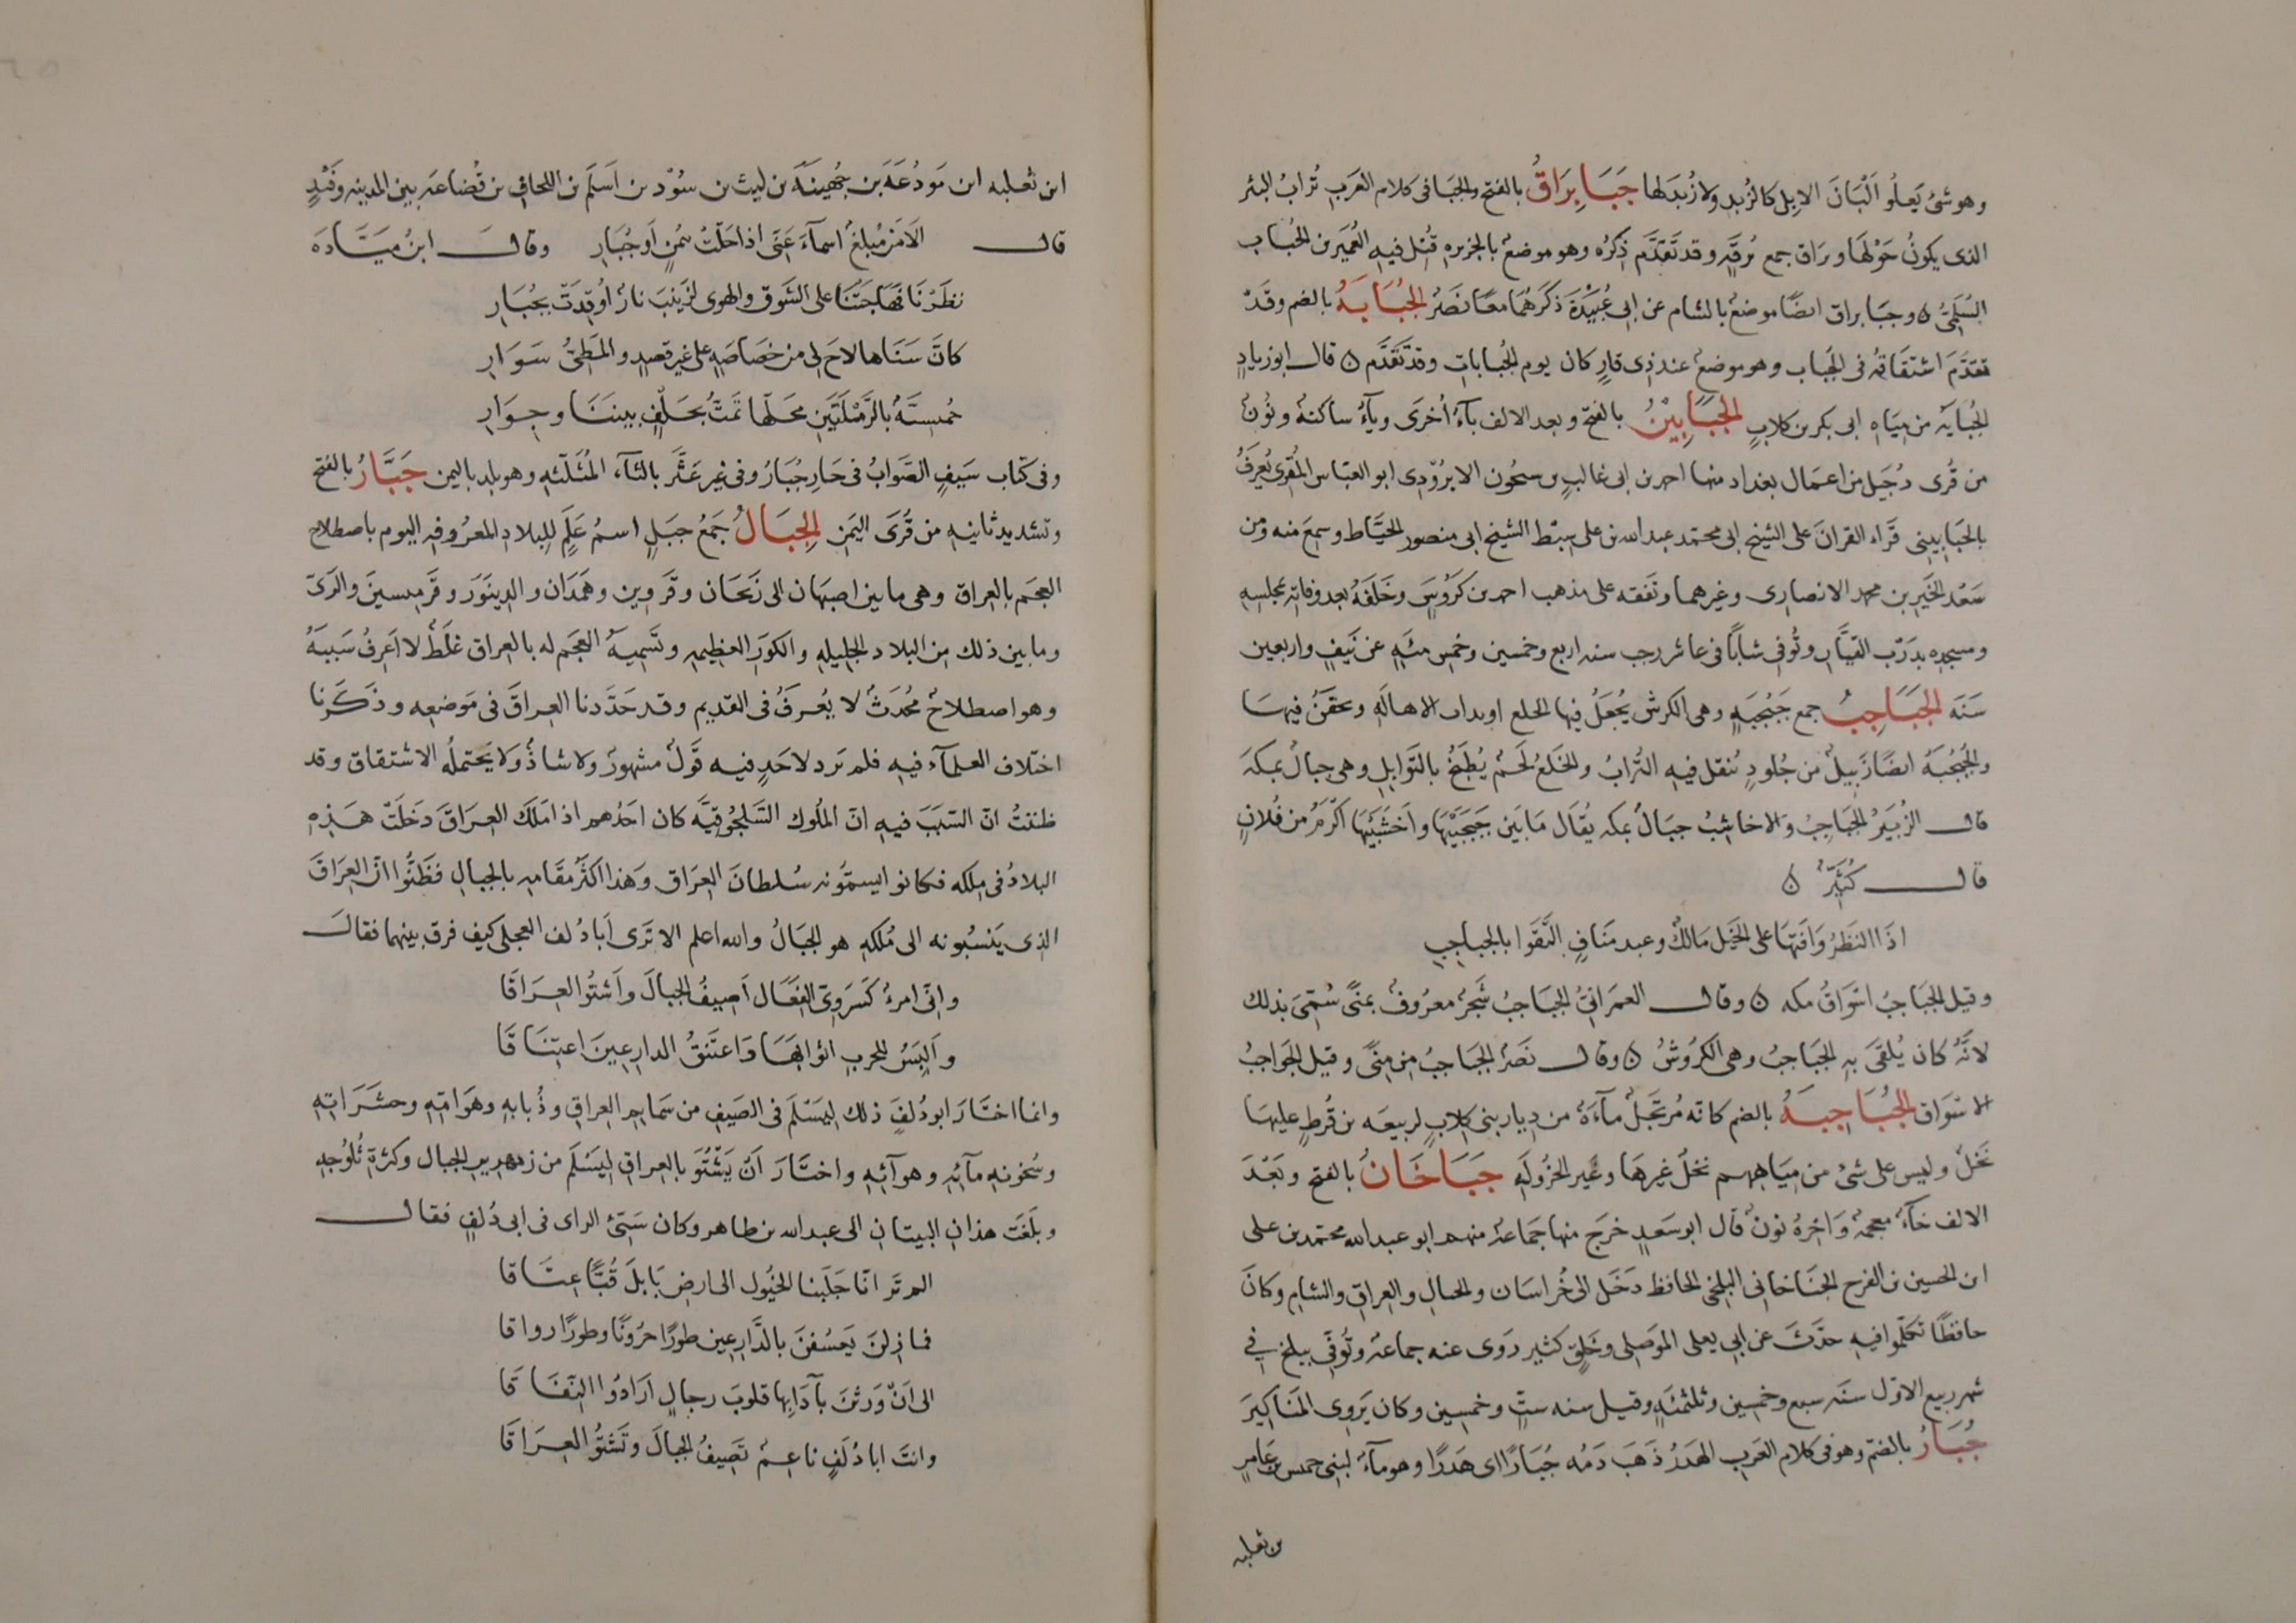 وهو شئ يَعلُو اَلْبَانَ الابل كالزُبد ولا زُبدَ لها جَبَا بِرَاقٌ بالفتح والجَبَا فى كلام العَرَب تُرابُ البئر
الذى يكونُ حَوْلَهَا وبرَاق جمع بُرقَةٍ وقد تَقدَّم ذِكرُه وهو موضعٌ بالجزيره قُتِل فيه العُمَير بن الحُبَاب
السُلَمِىُّ ٥ وجَبَا براق ايضًا موضعٌ بالشام عن ابى عُبَيْدَة ذكَرَهُمَا معًا نَصْرٌ الجُبَابَةُ بالضم وقَدْ
تقدَّمَ اشتقَاقُه فى الجُباب وهو موضعٌ عند ذى قارٍ كان يوم الجُبابات وقد تَقَدَّم ٥ قال ابو زيادٍ
الجُبابة من مِيَاه ابى بكر بن كلابٍ الجَبَابِيْنُ بالفتح وبعد الالف باءٌ اُخرَى وياءٌ ساكنهٌ ونونٌ
من قُرى دُجَيل من اعمال بغداد منها احمد بن ابى غالبٍ بن سمحُون الابرُوْدِى ابو العبّاس المُقرى يُعرَفُ
بالجَبابِينى قَراء القرانَ على الشيخ ابى محمّد عبد الله بن على سِبْط الشيخ ابى منصور الخيّاط وسمعَ منه ومن
سَعْد الخَير بن محمد الانصارى وغيرهما وتَفقه على مذهب احمد بن كَرُوسٍ وخَلَفَهُ بعد وفاته بمجلسه
ومسجده بدَرْب القيّار وتُوفى شابًا فى عاشر رجب سنه اربع وخمسين وخمس مئهٍ عن نَيفٍ واربعين
سَنَه الجَبَاجِبُ جمع جَبْجَبَهٍ وهى الكرش يُجعَلُ فيها الخلع او يداب الاهالَه وتحقَنُ فيها
والجُبْجُبَهُ ايضًا زَبيلٌ من جُلودٍ يُنقل فيه التُرابُ والخَلعُ لَحْم يُطبَخُ بالتَوابِل وهى جبالٌ بمكه
قال الزُبَيْرُ الجَبَاجِبُ والاخاشِبُ جبَالٌ بمكه يُقَال مَا بَين جَبْجَبَيْها واخَشَبَيْها اكْرَمُ من فُلانٍ
قال كُثَيّرٌ ٥
اذَا النَضْرُ وَافَتَهَا على الخَيل مَالكٌ وعبد مَنافٍ التَقَوا بالجباجِبِ
وقيل الجَبَاجِبُ اسْوَاقُ مكه ٥ وقال العمرَانىُّ الجَبَاجِبُ شَجَرٌ معرُوفٌ بمنًى سُمّىَ بذلك
لانّهُ كان يُلقَى به الجَبَاجبُ وهى الكرُوشُ ٥ وقال نَصْرٌ الجَبَاجبُ من مِنًى وقيل الجَواجبُ
الاسْوَاق الجُبَاجِبَةُ بالضم كانه مُرتَجَلٌ مآءَهٌ من ديار بنى كلابٍ لربيعَه بن قُرطٍ عليها
نَخلٌ وليس على شئ من مِيَاههم نخلٌ غيرهَا وغير الجزُولَه جَبَاخَانُ بالفتح وبَعْدَ
الالف خآءٌ معجمهٌ وآخِرهُ نونٌ قال ابو سَعدٍ خرَج منها جَمَاعهٌ منهم ابو عبد الله محمّد بن على
ابن الحسين بن الفرح الجبَاخانى البلخى الحافظ دَخَل الى خُراسَان والجبال والعراق والشام وكانَ
حافظًا تكلّموا فيه حدَّثَ عن ابى يعلى الموَصِلى وخَلقٍ كثير رَوى عنه جماعهٌ وتُوفّى ببلخ فى
شهر ربيع الاوّل سنَه سبع وخمسين وثلثمئهٍ وقيل سنه ستٍّ وخمسين وكان يَروى المنَاكيرَ
جُبَارٌ بالضمّ وهو فى كلام العَرب الهدَرُ ذَهَبَ دَمُه جُبَارًا اى هَدَرًا وهو مآءٌ لبنى حميس بن عَامرٍ
بن ثعلبه
ابن ثعلبه ابن مَودُعَةَ بن جُهينَةَ بن ليث بن سُوْد بن اَسلُمَ بن الحاف بن قُضاعه بين المدينه وفَيْدٍ
قال الا مَنْ مُبلغٌ اسمآءَ عَنّى اذا حَلّتْ بيُمْنٍ او جُبَارِ وقال ابنُ مَيَّادَه
نظَرْنَا فهَاجَتْنَا على الشَوق والهوى لزينَبَ نارٌ اُوقِدَتْ بجُبَارِ
كانَّ سَنَاها لاحَ لى من خصَاصَهٍ على غير قصدٍ والمَطِىُّ سَوَارِ
حُميسيَّهٌ بالرَّمْلَتَين محَلّها تَمتُّ بحَلْفٍ بينَنَا وجِوَارِ
وفى كتاب سَيفٍ الصَّوابُ فى حَارِ جُبَارُ وفى غير عَثَّر بالثآء المُثَلّثَهِ وهو بلد باليمن جَبَّارُ بالفتح
وتشديد ثانيه من قُرَى اليَمن الجِبَالُ جمَعُ جبَلٍ اسمُ عَلَمٍ للبِلادِ المعرُوفه اليوم باصطلاح
العجَم بالعراق وهى ما بين اصبَهان الى زَنجَان وقزوين وهمَدَان والدِينَوَر وقَرْمِيسينَ والرَىّ
وما بين ذلك من البلاد الجليلهِ والكوَر العظِيمه وتَسْميهُ العَجَم له بالعراق غلَطٌ لا اعَرفُ سَبَبَهُ
وهو اصطلاحٌ مُحْدَثٌ لا يُعرَفُ فى القديم وقد حَدَّدنا العِراقَ فى مَوضعه وذكَرنا
اختلاف العلمآء فيه فلم تَرد لاحَدٍ فيه قَولٌ مشهورٌ ولا شاذُّ ولا يَحتملُه الاشتقاق وقد
ظننتُ انّ السَبَبَ فيه انّ المُلوك السَلجُوقيَّه كان احَدُهم اذا مَلَكَ العِرَاقَ دَخَلَتْ هَذِه
البلادُ فى ملكه فكانوا يسمّونه سُلطانَ العِرَاق وَهذا اكثَرُ مقَامِه بالجبال فظَنُّوا انّ العِرَاقَ
الذى يَنسُبونه الى مُلكهِ هو الجبَالُ والله اعلم الا تَرى اَبَا دُلف العجلى كيف فرق بينهما فقال
وانّى امرءٌ كَسرَوىّ الفَعَال اَصيفُ الجبَالَ واَشتُو العِرَاقَا
واَلبَسُ للحرب اثوابَهَا واعتَنقُ الدارعينَ اعتِنَاقَا
وانما اختَارَ ابو دُلفٍ ذلك ليَسْلَمَ فى الصَيفِ من سَمايم العراقِ وذُبابهِ وهَوَامّهِ وحشَرَاتهِ
وسُخونهِ مآئه وهوآئِهِ واختَارَ اَنْ يَشْتُوَ بالعراقِ ليَسْلَمَ من زمهرير الجبال وكثرةِ ثُلوُجهِ
وبلَغَت هذانِ البيتانِ الى عبد الله بن طاهر وكان سَيّئ الراى فى ابى دُلفٍ فقال
الم تَر انّا جَلَبنا الخيُول الى ارضِ بَابلَ قُبًّا عِتَاقا
فما زِلنَ يَعسُفنَ بالدَّارِعِين طورًا حزُونًا وطورًا رواقا
الى اَنْ وَرثنَ بآدَابِها قلوبَ رجالٍ اَرَادُوا النِّفَاقَا
وانتَ ابا دُلَفٍ ناعِمٌ تَصِيفُ الجبالَ وتَشتُو العِرَاقَا